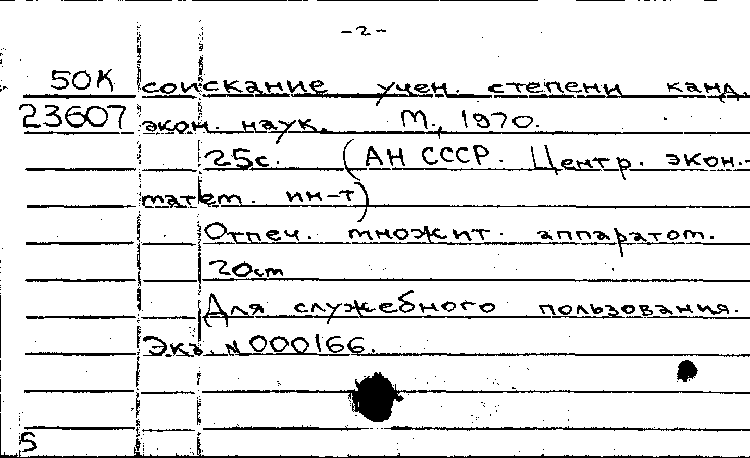 -2-
50К соискание учен. степени канд.
23607 экон. наук. М., 1970.
25с. (АН СССР. Центр. экон.-
матем. ин-т)
Отпеч. множит. аппаратом.
20cm
Для служебного пользования.
Экз. N 000166.
5